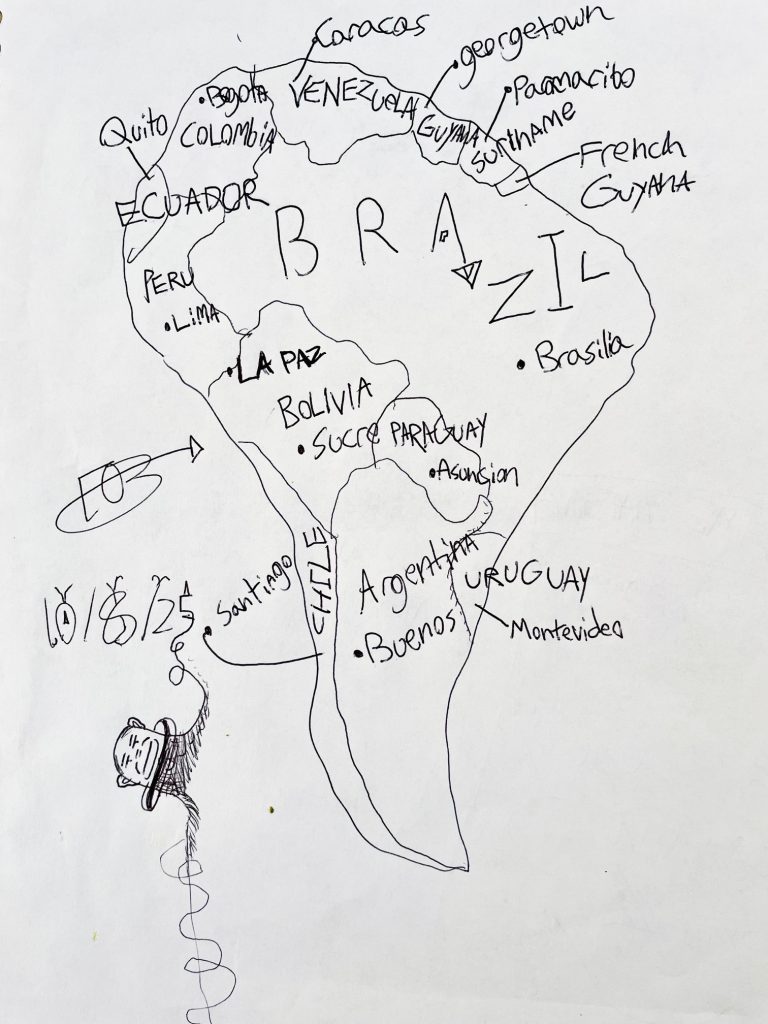 Caracas
georgetown
Bogota
VENEZUELA
Paramaribo
Quito
COLOMBIA
GUYANA
SURINAME
French
GUYANA
ECUADOR
BRAZIL
PERU
LIMA
LA PAZ
Brasilia
BOLIVIA
Sucre
PARAGUAY
Asuncion
CHILE
Argentina
URUGUAY
10/8/25
Santiago
Buenos
Montevideo